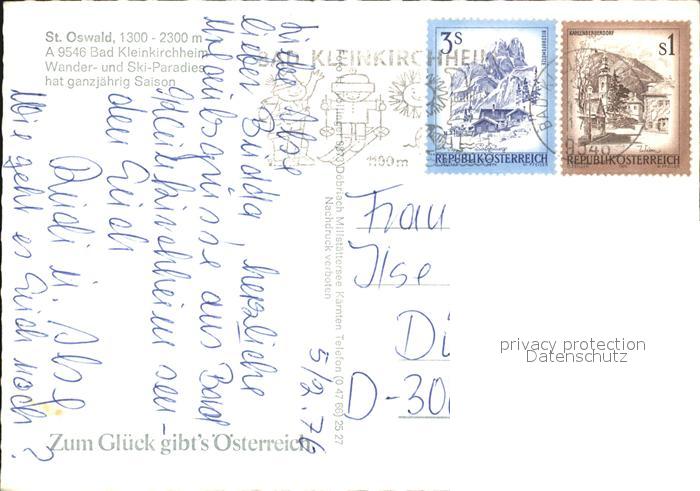 St. Oswald, 1300 - 2300 m
A 9546 Bad Kleinkirchheim
Wander- und Ski-Paradies
hat ganzjährig Saison
BAD KLEINKIRCHHEIM
1100 m
9546
3s
REPUBLIK ÖSTERREICH
KAHLENBERGERDORF
s1
REPUBLIK ÖSTERREICH
Döbriach Millstättersee Kärnten Telefon (0 47 66) 25 27
Nachdruck verboten
5/2.76
Liebe Ilse
lieber herzliche
Urlaubsgrüsse aus Bad
Kleinkirchheim sen-
den Euch
Rudi u.
Wie geht es Euch noch?
Frau
Ilse
Di
D-30
privacy protection
Datenschutz
Zum Glück gibt's Österreich